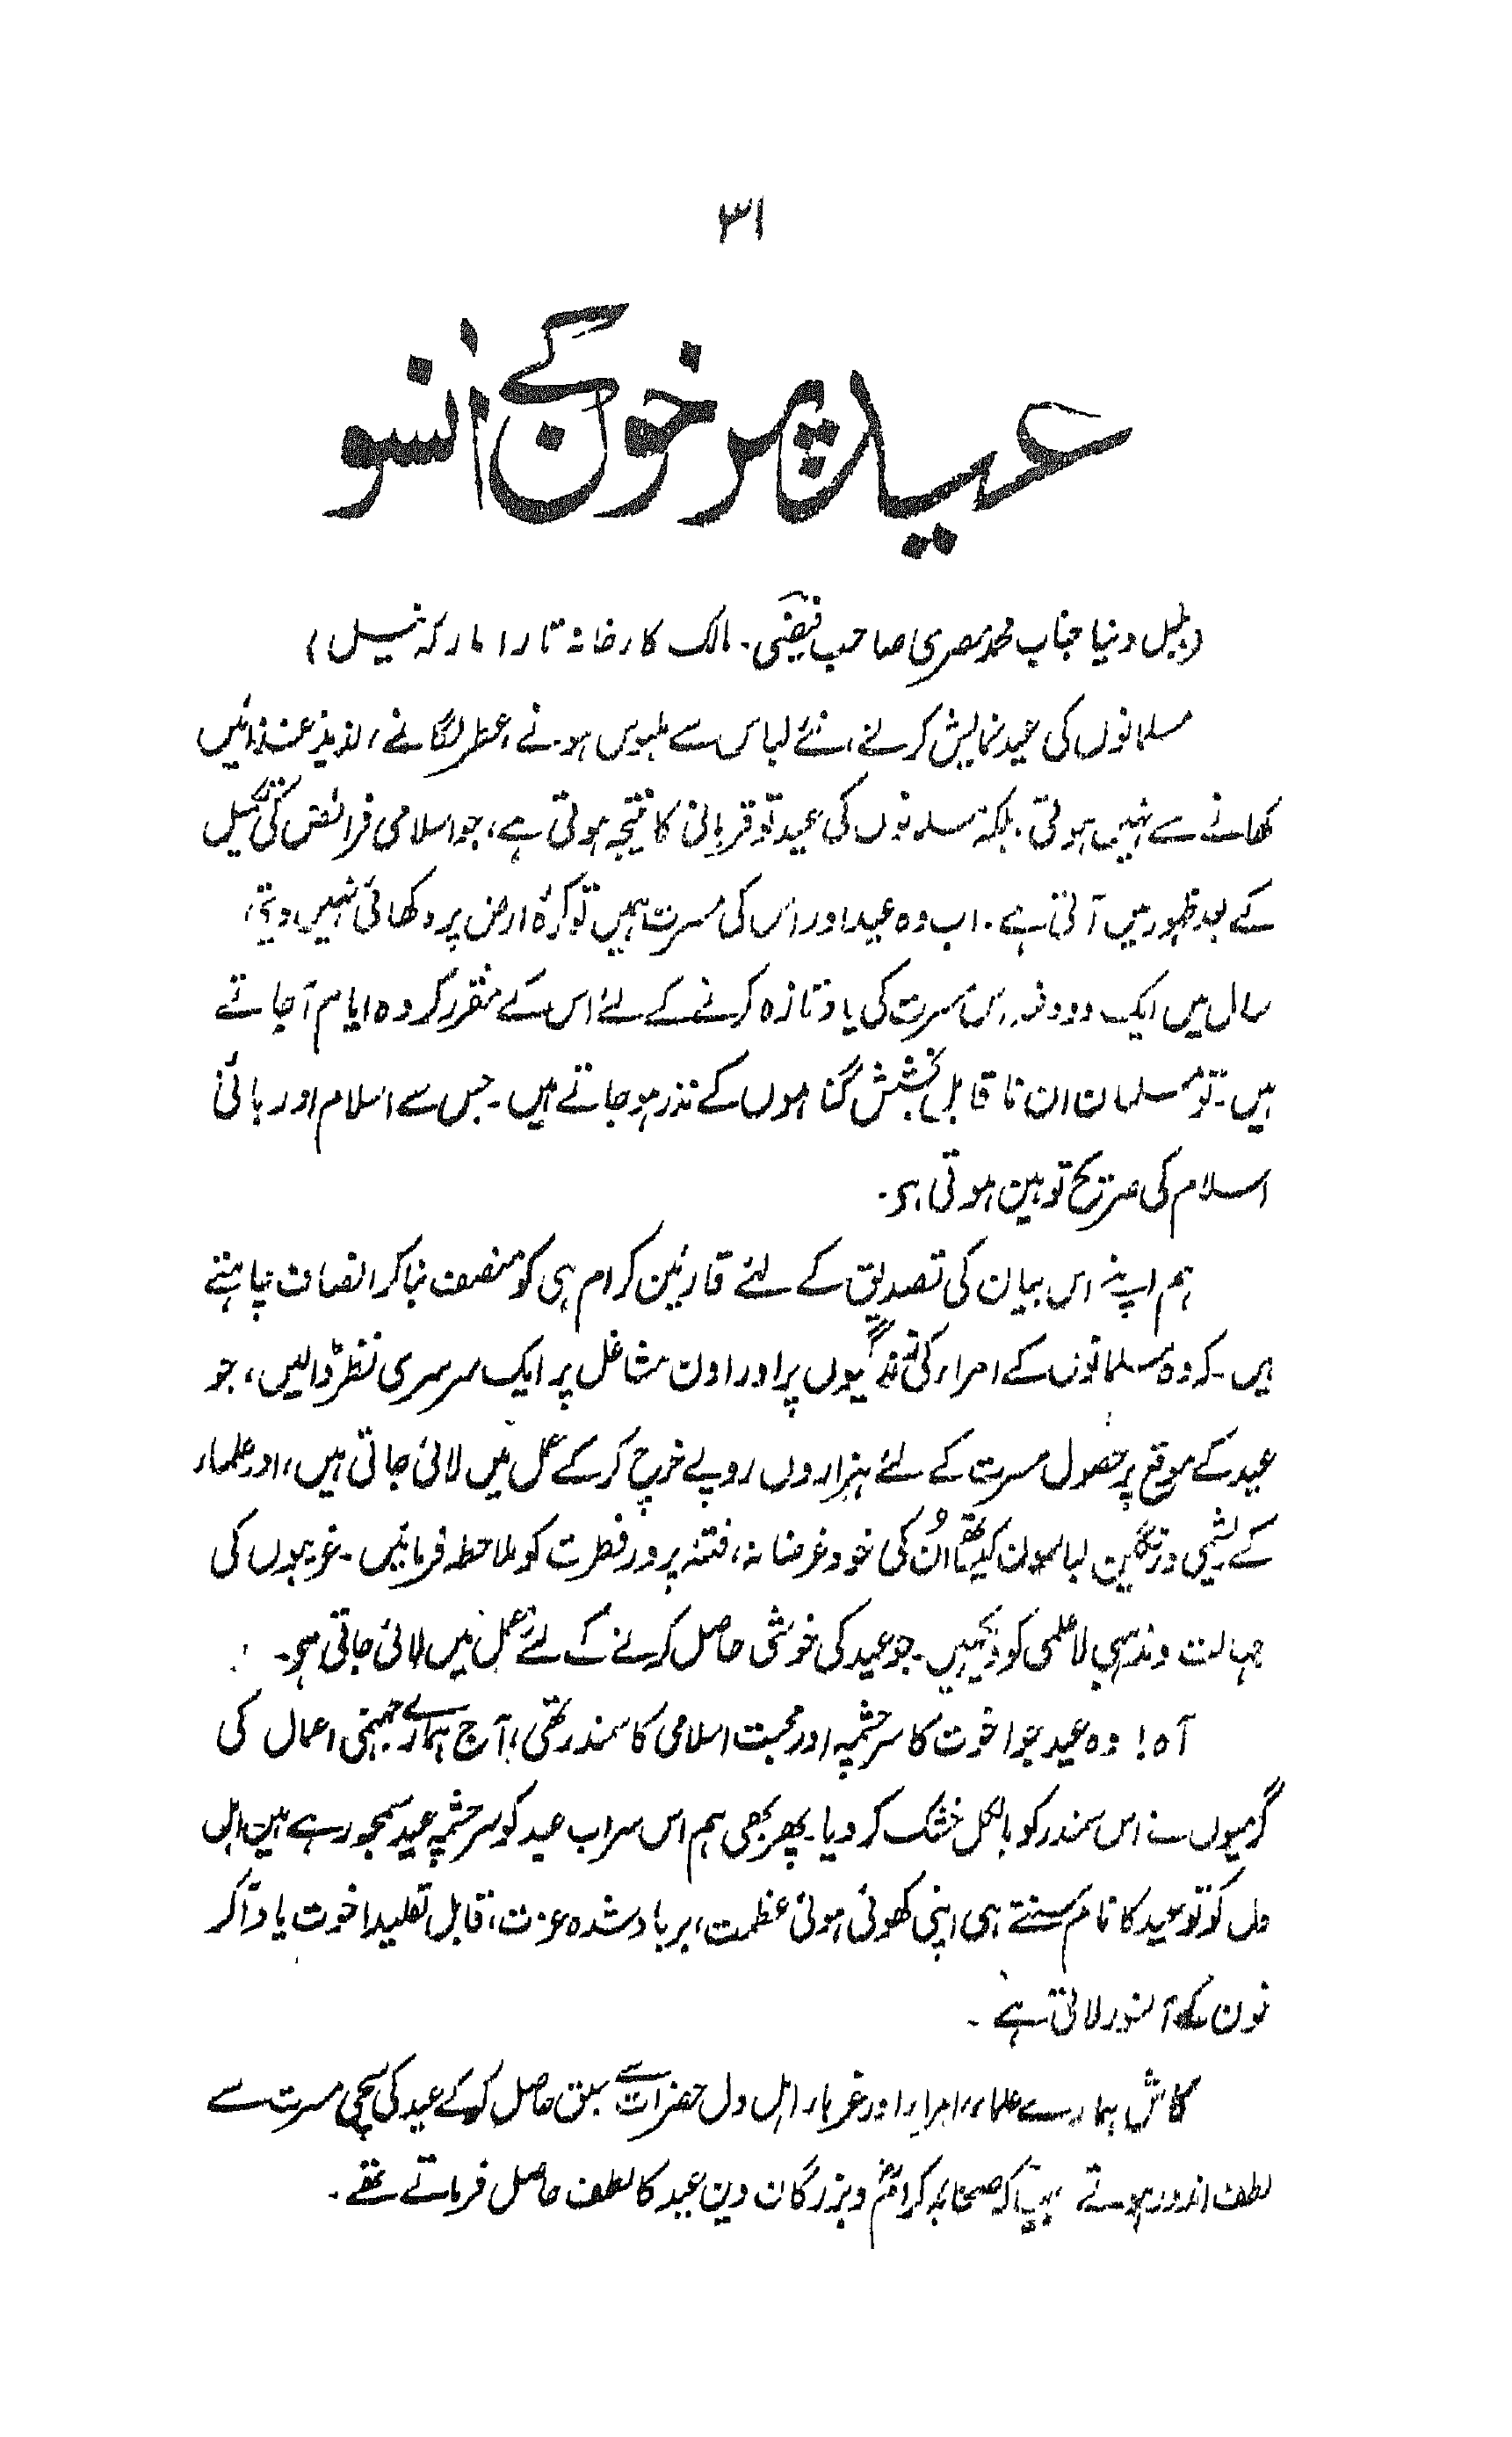 ۳۱
عید پر خون کے آنسو
(بلبل دنیا جناب محمد مصری صاحب فیضی۔ مالک کارخانہ تارا مارکہ نیل)
مسلمانوں کی عید نمایش کرنے، نئے لباس سے ملبوس ہونے، عطر لگانے، لذیذ غذائیں
کھانے سے نہیں ہوتی۔ بلکہ مسلمانوں کی عید تو قربانی کا نتیجہ ہوتی ہے، جو اسلامی فرائض کی تکمیل
کے بعد ظہور میں آتی ہے۔ اب وہ عید اور اس کی مسرت ہمیں تو کرۂ ارض پر دکھائی نہیں دیتی،
سال میں ایک دو دفعہ اس مسرت کی یاد تازہ کرنے کے لئے اس کے مقرر کردہ ایام آجاتے
ہیں۔ تو مسلمان ان ناقابل بخشش گناہوں کے نذر ہو جاتے ہیں۔ جس سے اسلام اور بانی
اسلام کی صریح توہین ہوتی ہے۔
ہم اپنے اس بیان کی تصدیق کے لئے قارئین کرام ہی کو منصف بنا کر انصاف چاہتے
ہیں۔ کہ وہ مسلمانوں کے امراء کی زندگیوں پر اور اون مشاغل پر ایک سرسری نظر ڈالیں، جو
عید کے موقع پر حصول مسرت کے لئے ہزاروں روپے خرچ کر کے عمل میں لائی جاتی ہیں، اور علماء
کے ریشمی و رنگین لباسوں کیساتھ اُن کی خود غرضانہ، فتنہ پرور فطرت کو ملاحظہ فرمائیں۔ غریبوں کی
جہالت و مذہبی لاعلمی کو دیکہیں۔ جو عید کی خوشی حاصل کرنے کے لئے عمل میں لائی جاتی ہی۔
آہ! وہ عید جو اخوت کا سرچشمہ اور محبت اسلامی کا سمندر تھی، آج ہمارے جہنمی اعمال کی
گرمیوں نے اس سمندر کو بالکل خشک کر دیا۔ پھر بھی ہم اس سراب عید کو سرچشمہ عید سمجھ رہے ہیں اہل
دل کو تو عید کا نام سنتے ہی اپنی کھوئی ہوئی عظمت، برباد شدہ عزت، قابل تقلید اخوت یاد آ کر
خون کے آنسو رلاتی ہے۔
کاش ہمارے علماء، امراء اور غرباء اہل دل حضرات سے سبق حاصل کر کے عید کی سچی مسرت سے
لطف اندوز ہوتے جیسا کہ صحابہ کرامؓ و بزرگان دین عید کا لطف حاصل فرماتے تھے۔